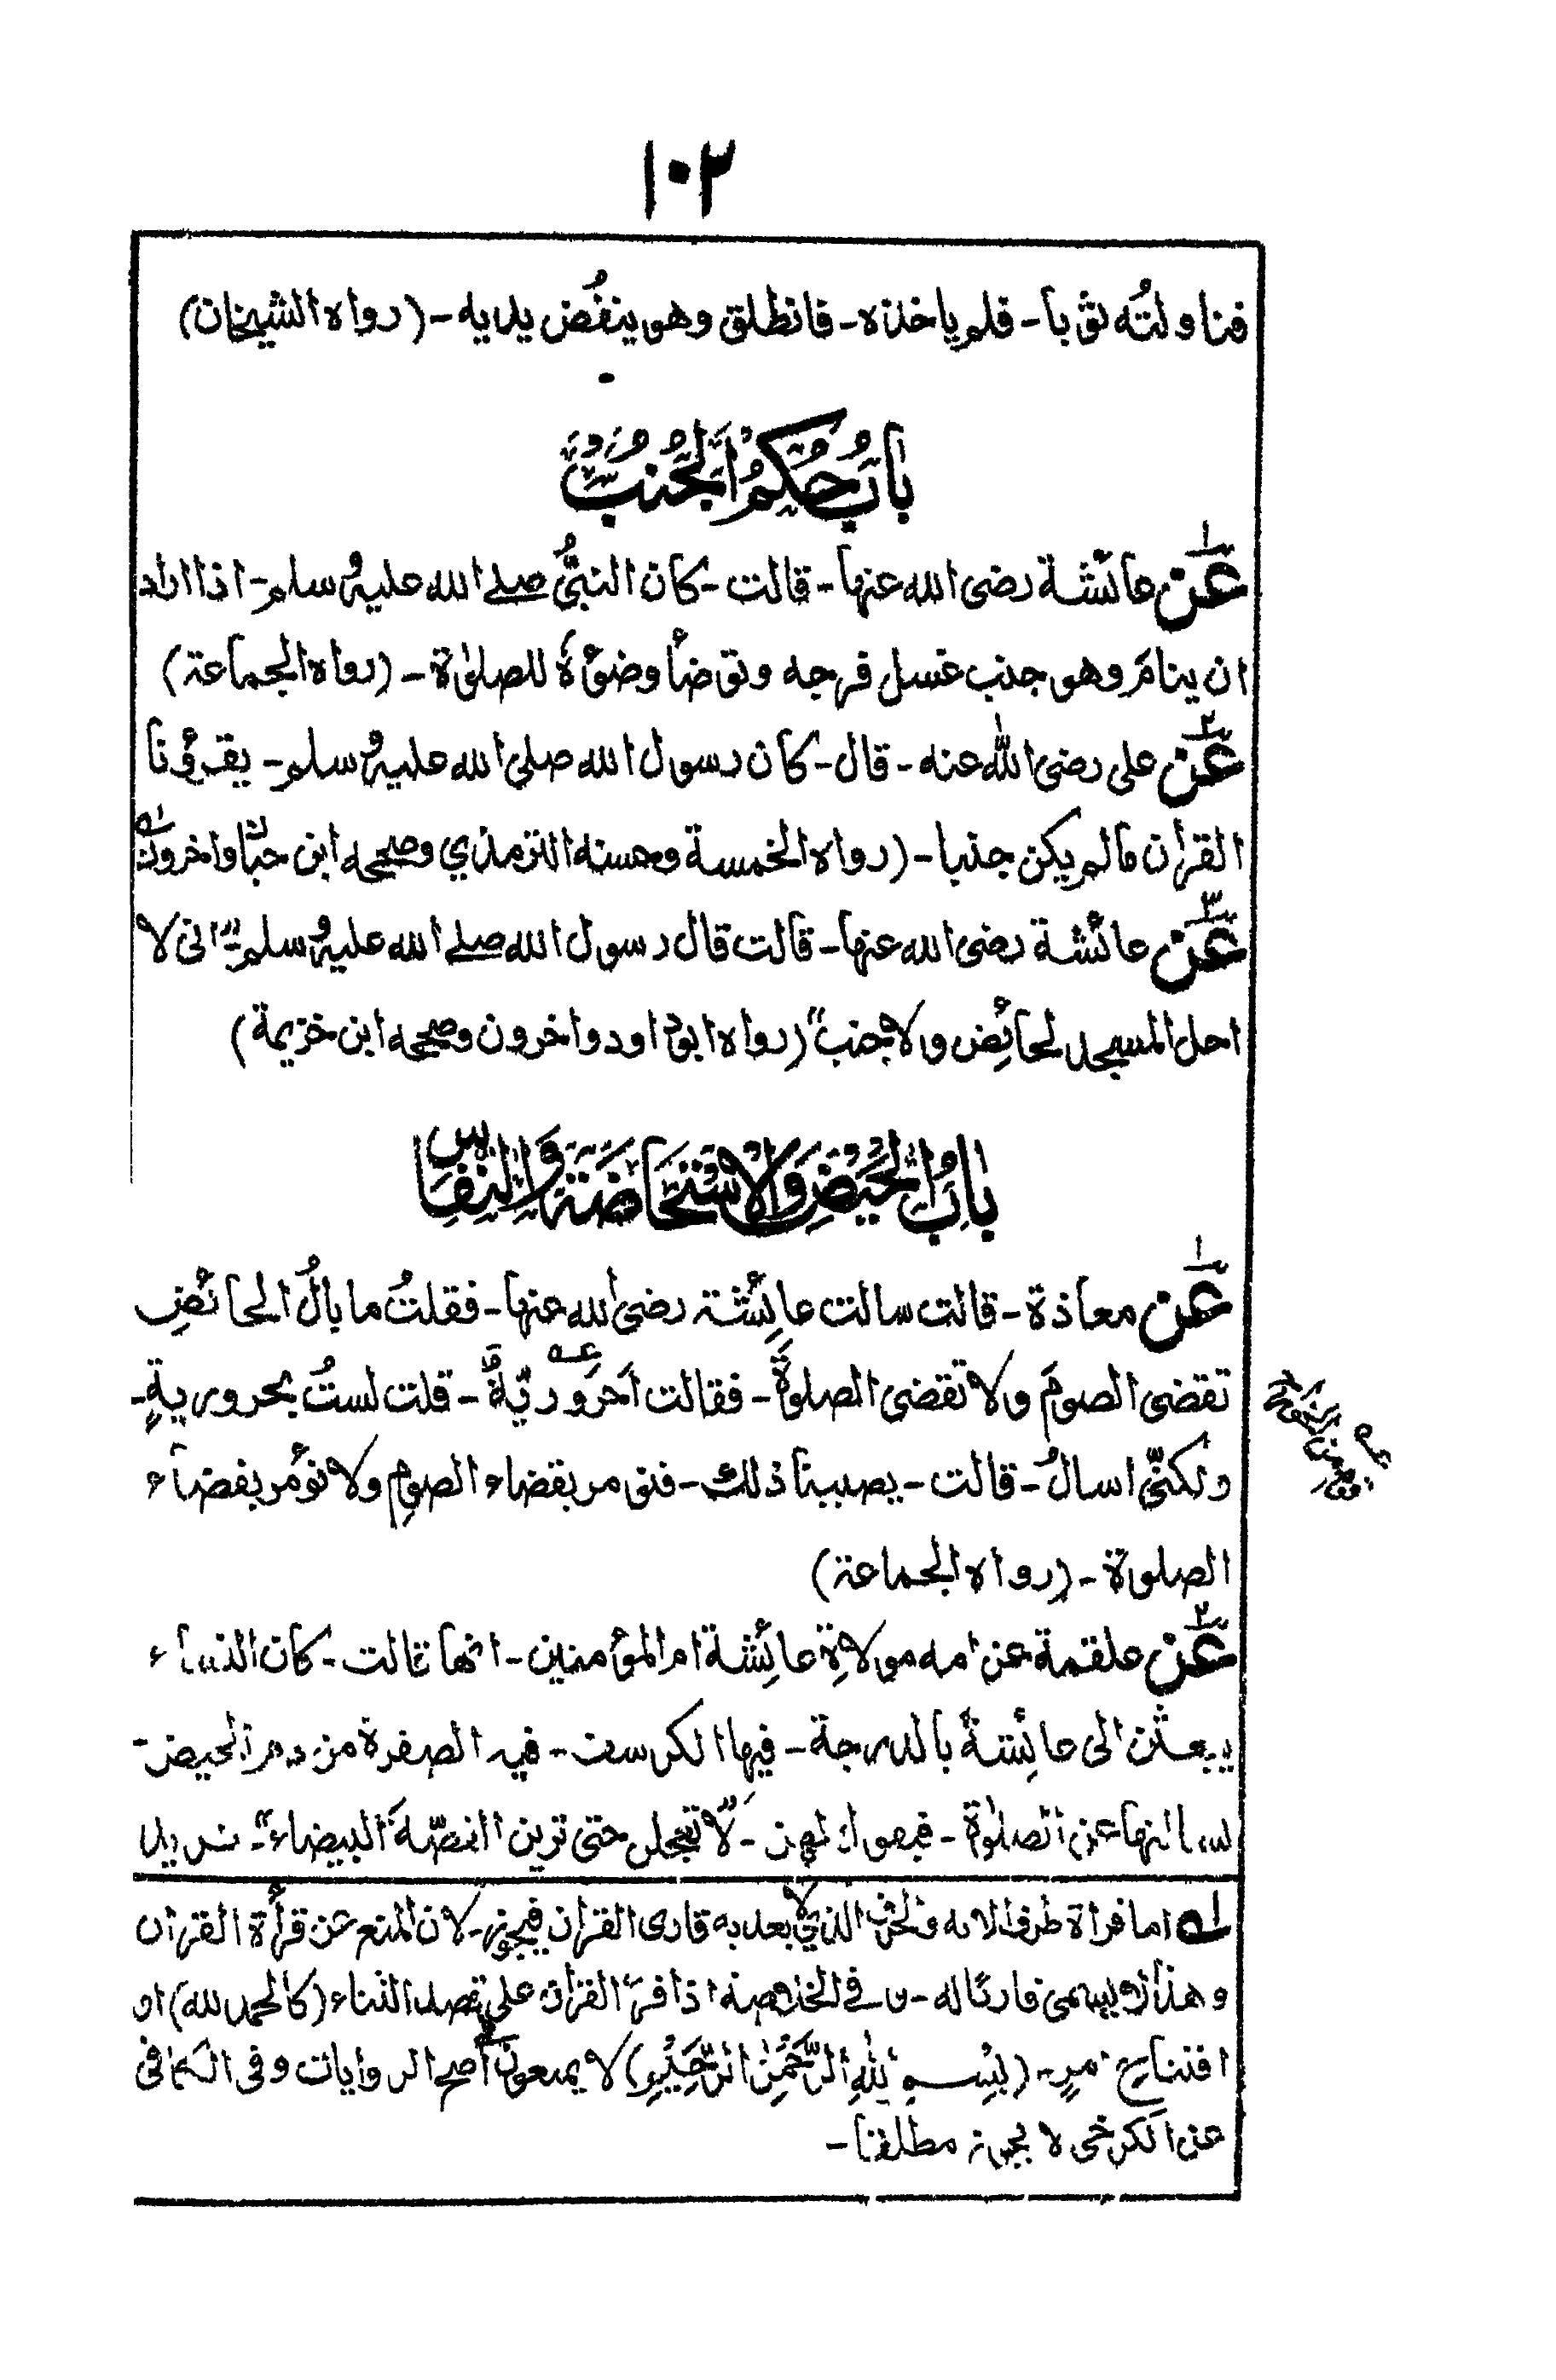 ١٠٢
فناولتُه ثوبا۔ فلم ياخذه۔ فانطلق وهو ينفُض يديه۔ (رواه الشيخان)
بَابُ حُكْمُ الْجُنُبِ
١ عَنْ عائشة رضى الله عنها۔ قالت۔ كان النبىُّ صلے الله عليه وسلم۔ اذا اراد
ان ينامَ وهو جنب غسل فرجه وتوضأ وضوءَهٗ للصلوٰة۔ (رواه الجماعة)
٢ عَنْ على رضى اللّٰه عنه۔ قال۔ كان رسول الله صلى الله عليه وسلم۔ يقرؤنا
القراٰن مالم يكن جنبا۔ (رواه الخمسة وحسنه الترمذي وصححه ابن حبان واخرون) لـه
٣ عَنْ عائشة رضى الله عنها۔ قالت قال رسول الله صلے الله عليه وسلم۔ "انى لا
احل المسجد لحائض ولا جنب" (رواه ابوداود واخرون وصححه ابن خزيمة)
بَابُ الْحَيْضِ وَالْاِسْتِحَاضَةِ وَالنِّفَاسِ
١ عَنْ معاذة۔ قالت سالت عائِشة رضى الله عنها۔ فقلتُ ما بالُ الحائضِ
تقضى الصومَ ولا تقضى الصلوةَ۔ فقالت اَحَرَورِيّةٌ عــه۔ قلت لستُ بحروريةٍ۔
ولكنّى اسالُ۔ قالت۔ يصيبنا ذلك۔ فنؤمر بقضاء الصومِ ولا نؤمر بقضاء
الصلوة۔ (رواه الجماعة)
٢ عَنْ علقمة عن امه مولاةِ عائِشة ام المؤمنين۔ انها قالت۔ كان النساء
يبعثن الى عائِشةَ بالدرجة۔ فيها الكرسف۔ فيه الصفرة من دم الحيض۔
يسالنها عن الصلوٰة۔ فتقول لهن۔ "لا تعجلن حتى ترين القصّةَ البيضاء"۔ تريد
لـه اما قراة طرف الاية والحرف الذي لا يعد به قارى القران فيجوز۔ لان المنع عن قرأة القران
وهذا لا يسمى قارئا له۔ وفے الخلاصة اذا قرء القران على قصد الثناء (كالحمد لله) او
افتتاح امرٍ۔ (بِسْمِ اللّٰهِ الرَّحْمٰنِ الرَّحِيْمِ) لا يمنع فے أصح الروايات وفى الكافى
عن الكرخى لا يجوز مطلقا۔